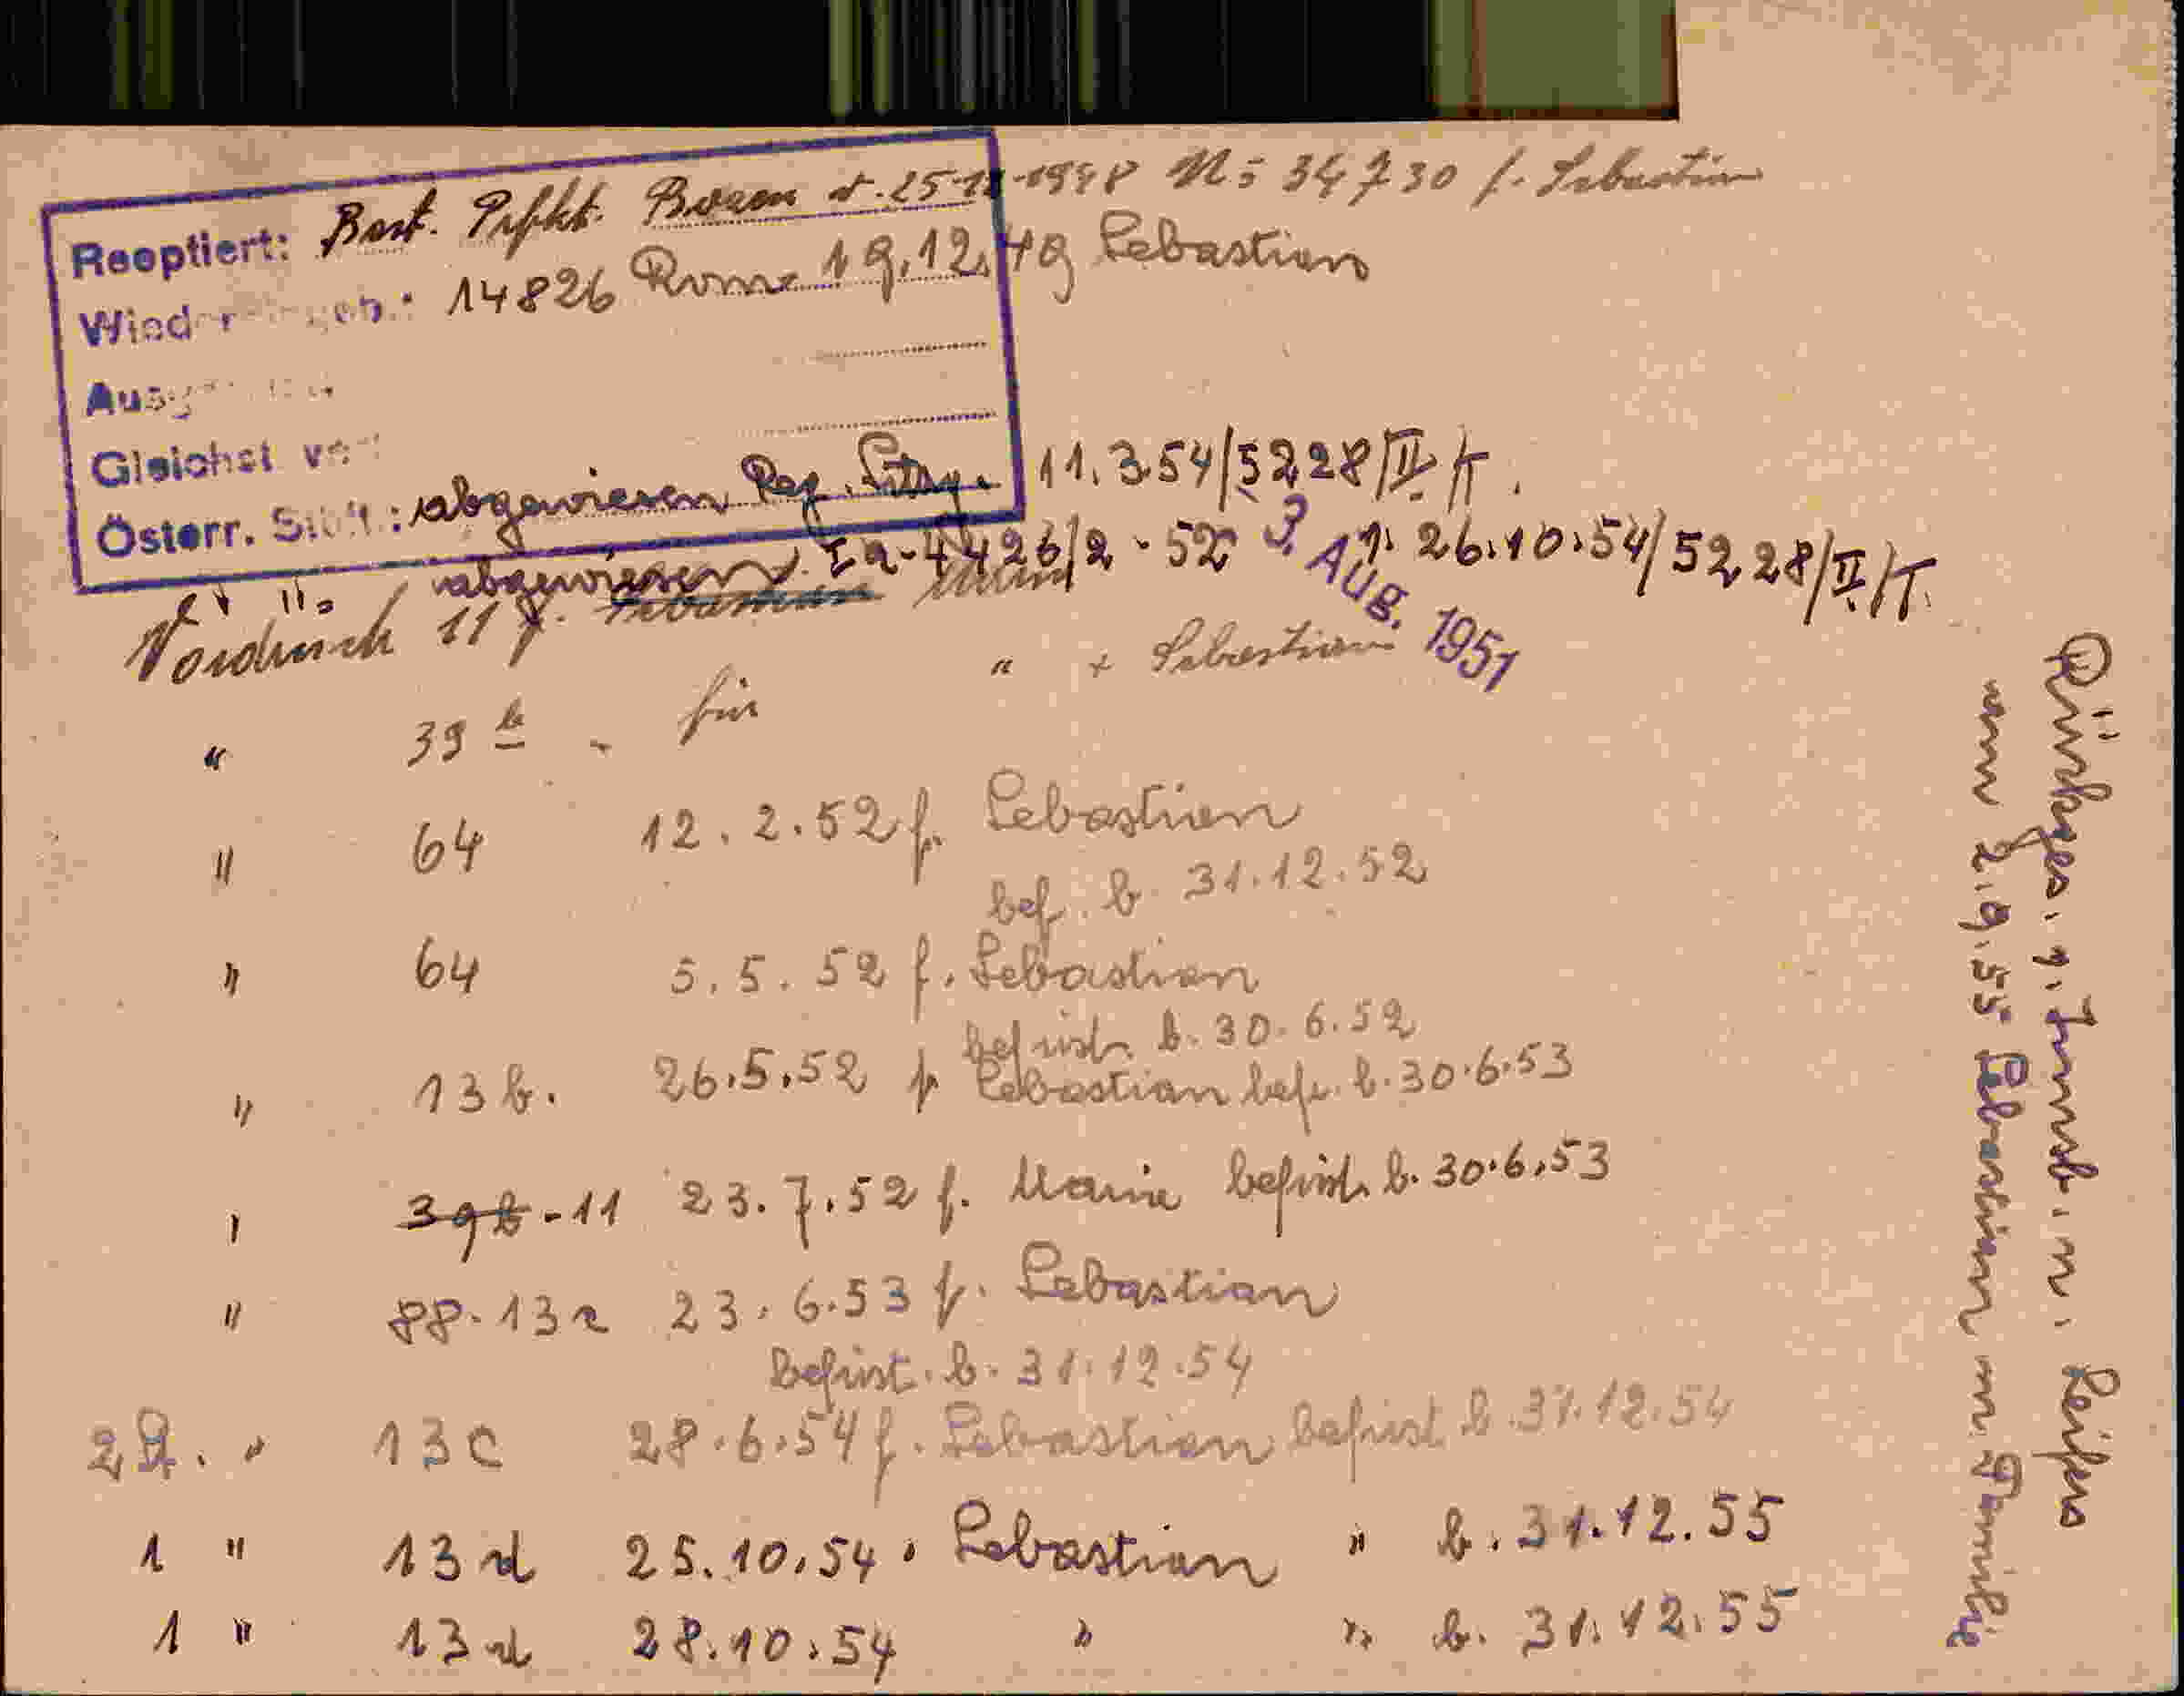 Reoptiert: Best. Prfkt. Bozen v. 25-11-1948 No 34730 f. Sebastian
14826 Rom 19.12.49 Sebastian
Gleichst
Österr. : abgewiesen 11.3.54/5228/II/T.
abgewiesen Ia-4426/2-52 1. 26.10.54/5228/II/T.
3. Aug. 1951
Vordruck 11 f.
" 39 b - für " + Sebastian
" 64 12.2.52 f. Sebastian
bef. b. 31.12.52
" 64 5.5.52 f. Sebastian
befrist. b. 30.6.52
" 13 b. 26.5.52 f. Sebastian befr. b. 30.6.53
" 39b - 11 23.7.52 f. Maria befrist. b. 30.6.53
" 88-13a 23.6.53 f. Sebastian
befrist. b. 31.12.54
2 St. " 13 c 28.6.54 f. Sebastian befrist b. 31.12.54
1 " 13 d 25.10.54 " Sebastian " b. 31.12.55
1 " 13 d 28.10.54 " " b. 31.12.55
Rückges. v. Innsb. n.
am 2.9.55 Sebastian m. Familie